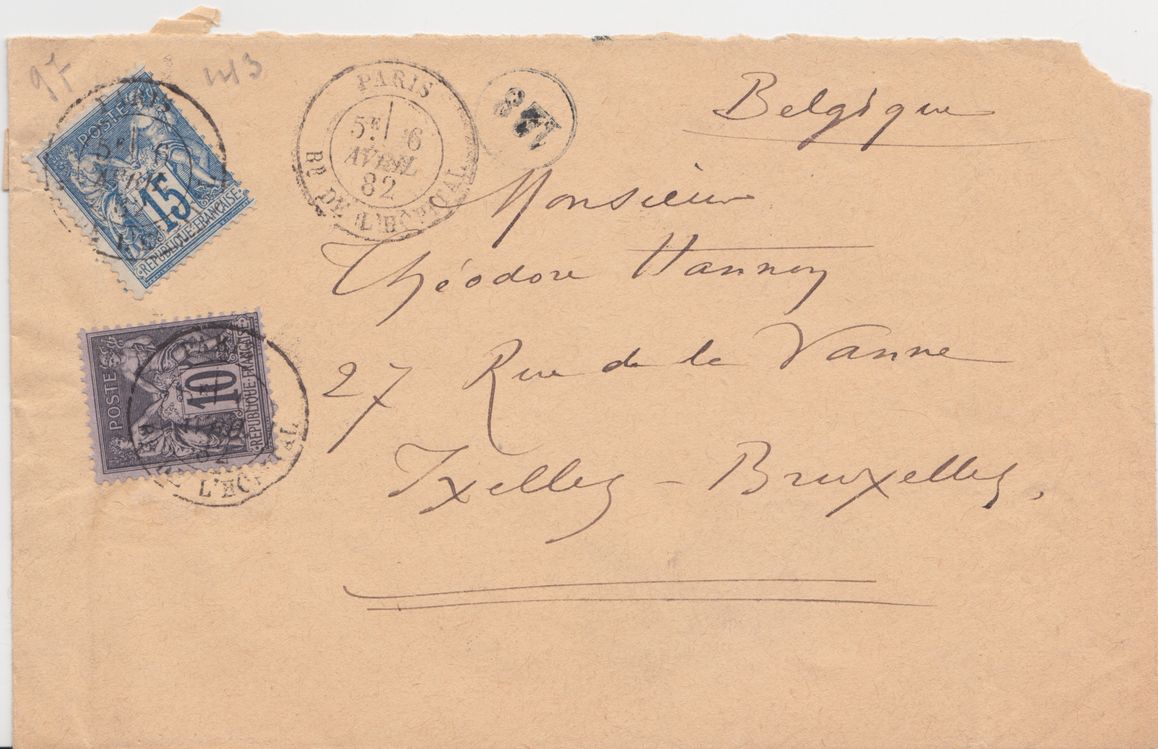 9F
413
Belgique
POSTES
15
REPUBLIQUE FRANÇAISE
PARIS
5E 6
AVRIL
82
BD DE L'HÔPITAL
Monsieur
Théodore Hannon
27 Rue de la Vanne
Ixelles – Bruxelles.
POSTES
10
REPUBLIQUE FRANÇAISE
L'HÔPITAL